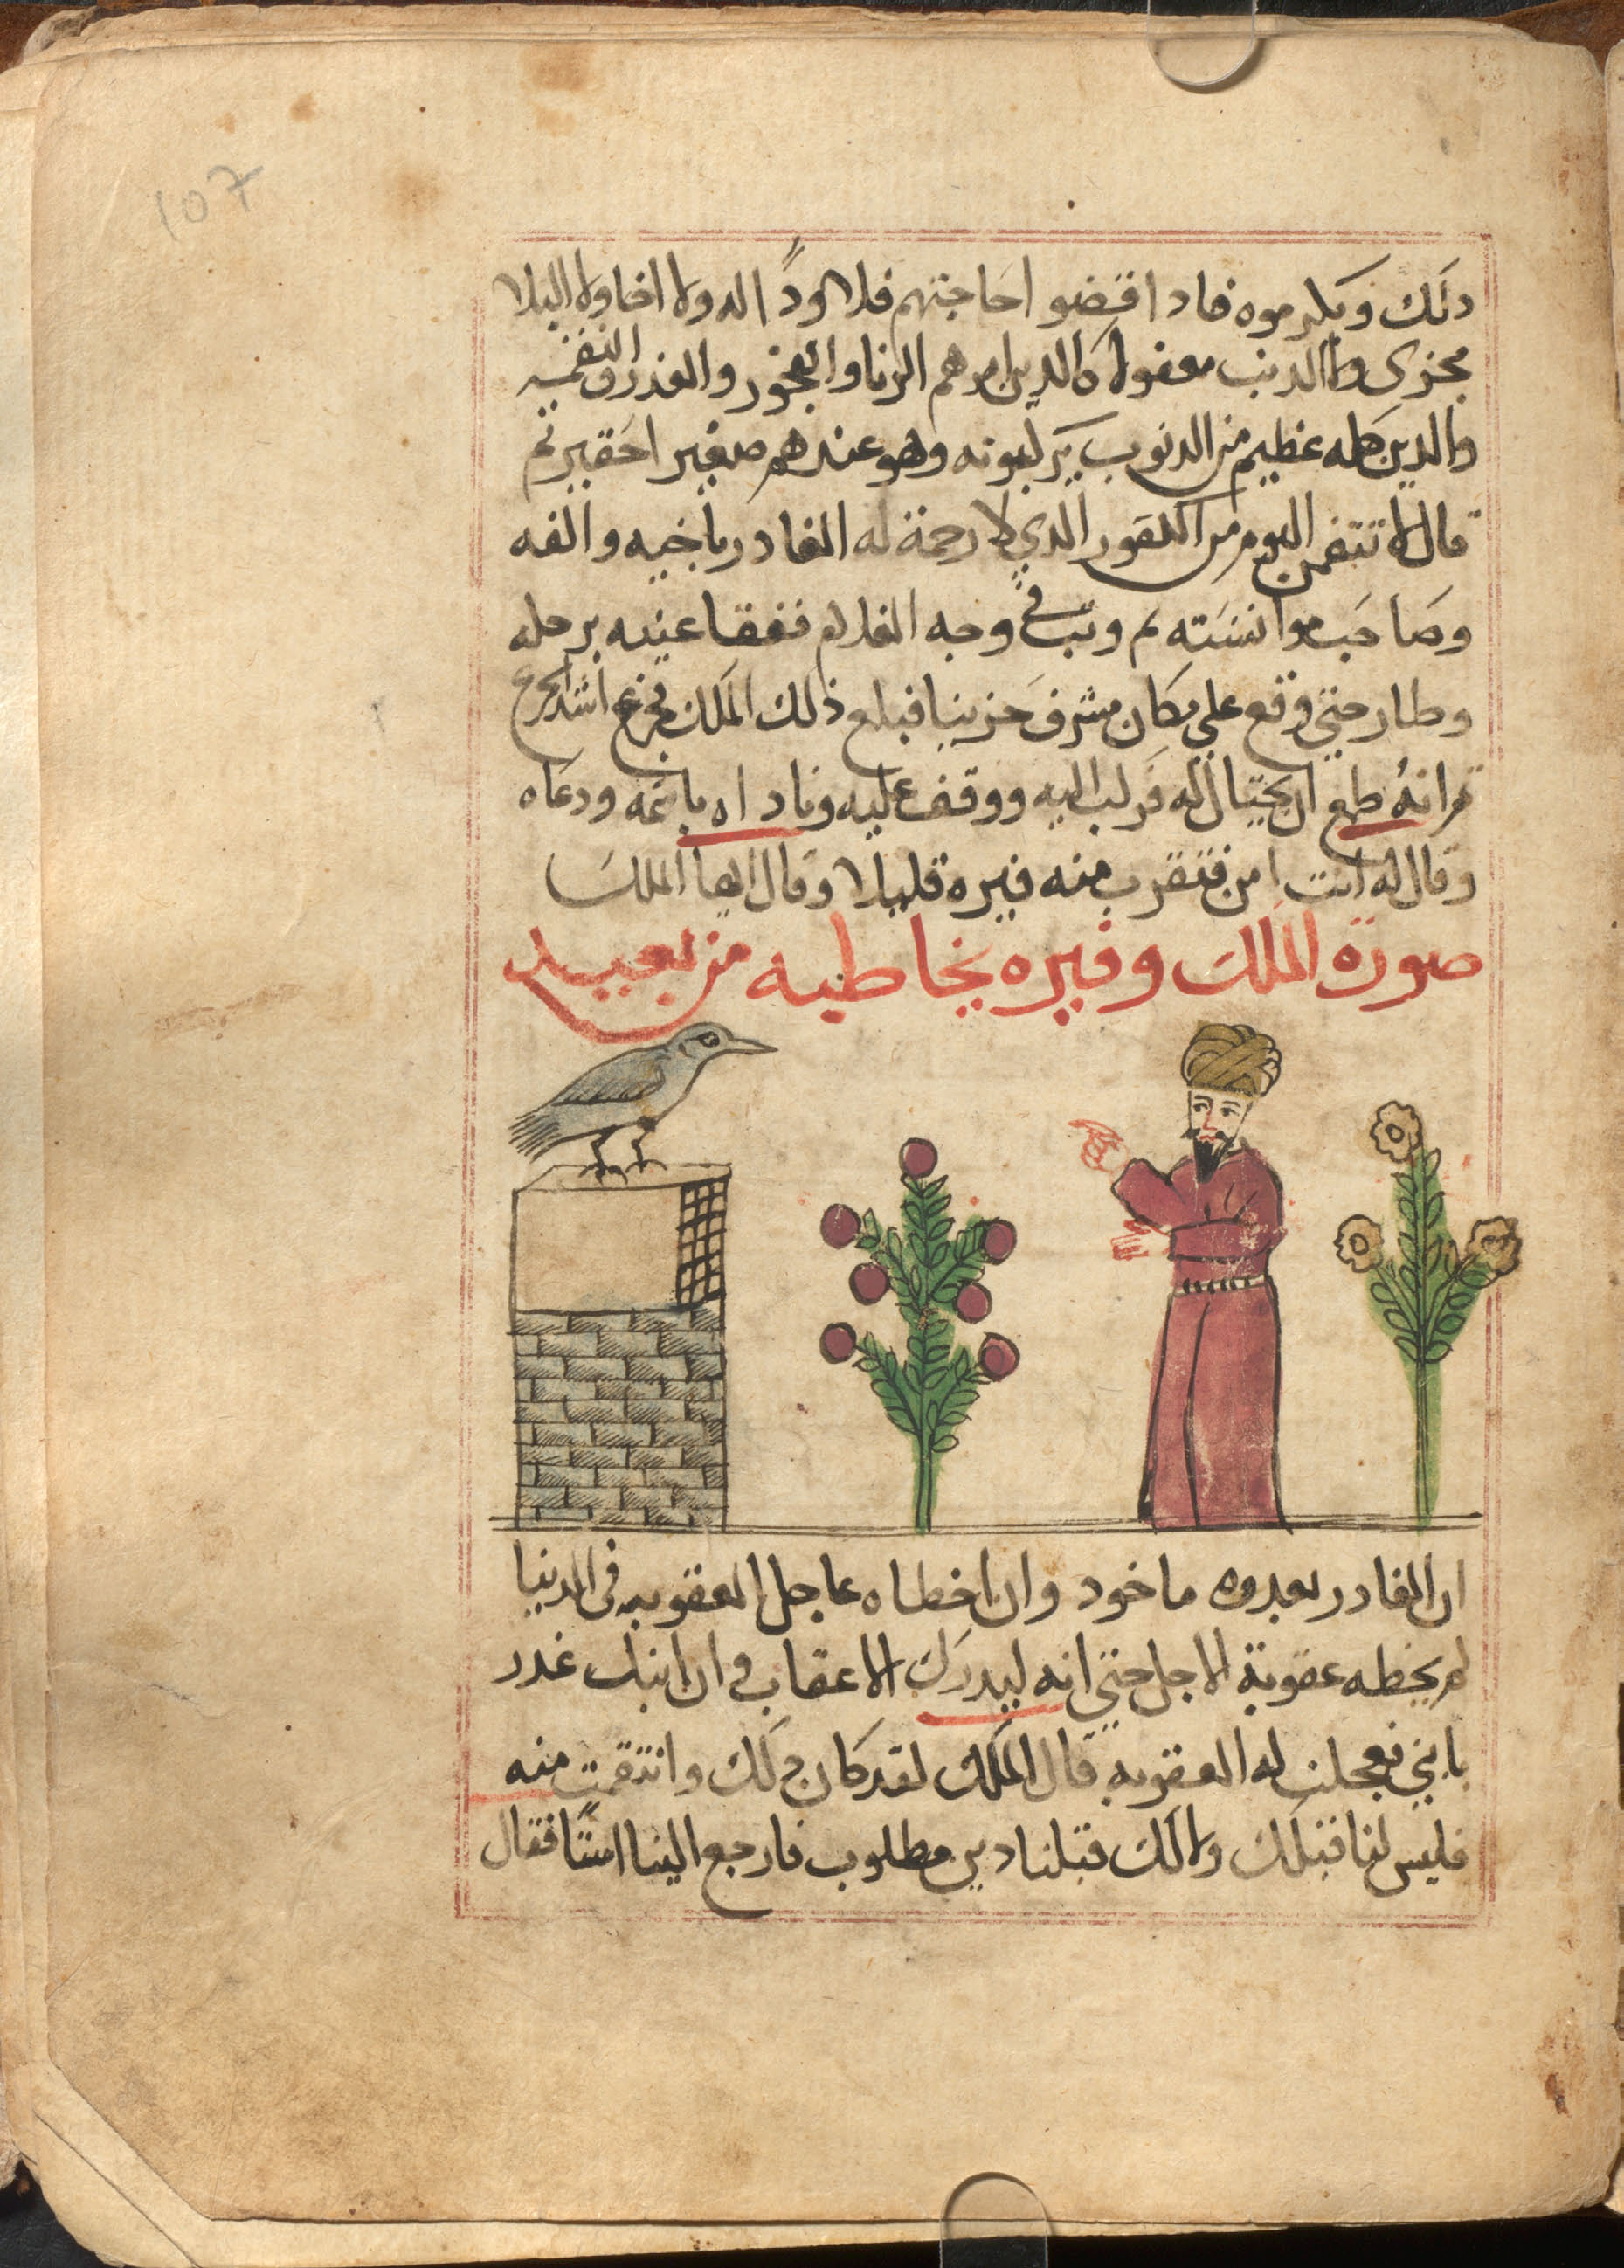 107
ذلك ويكرموه فاذا قضوا حاجتهم فلا ود الا ولا اخا ولا البلا
مجزى ولا الذنب معفو لا الذين امرهم الزنا والفجور والغدر والنقمه
والذين كله عظيم من الدنوب يركبونه وهو عندهم صغير احقير ثم
قال لا نتقمن اليوم من الكفور الدي لا رحمة له الغادر باخيه والفه
وصاحب موانسته ثم وثب في وجه الغلام ففقا عينه برجله
وطار حتي وقع علي مكان مشرف حزينا فبلع ذلك الملك فجزع اشد الجزع
ثم انه طمع ان يحتال له فركب اليه ووقف عليه وناداه باسمه ودعاه
وقال له انت امن فتقرب منه فيره قليلا وقال ايها الملك
صورة الملك وفيره يخاطبه من بعيد
ان الغادر بغدره ماخود وان اخطاه عاجل العقوبه في الدنيا
لم يخطه عقوبة الاجل حتي انه ليدرك الاعقاب وان ابنك غدر
بابني فعجلت له العقوبه قال الملك لقد كان ذلك وانتقمت منه
فليس لنا قبلك ولا لك قبلنا دين مطلوب فارجع الينا امنا فقال